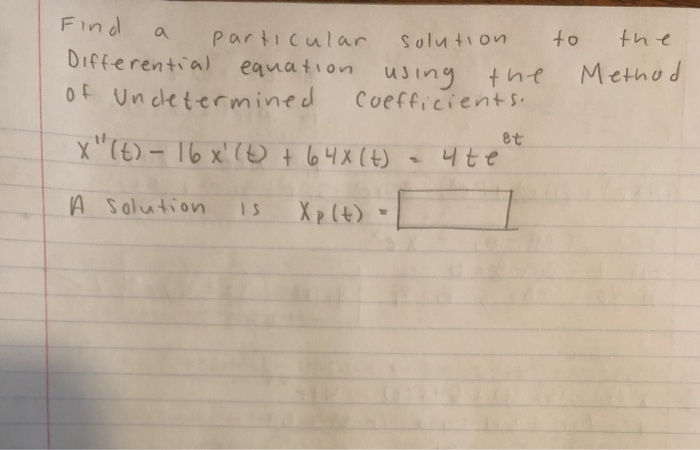 Find a particular solution to the
Differential equation using the Method
of Undetermined Coefficients.
x"(t) - 16x'(t) + 64x(t) = 4te^8t
A solution is Xp(t) =